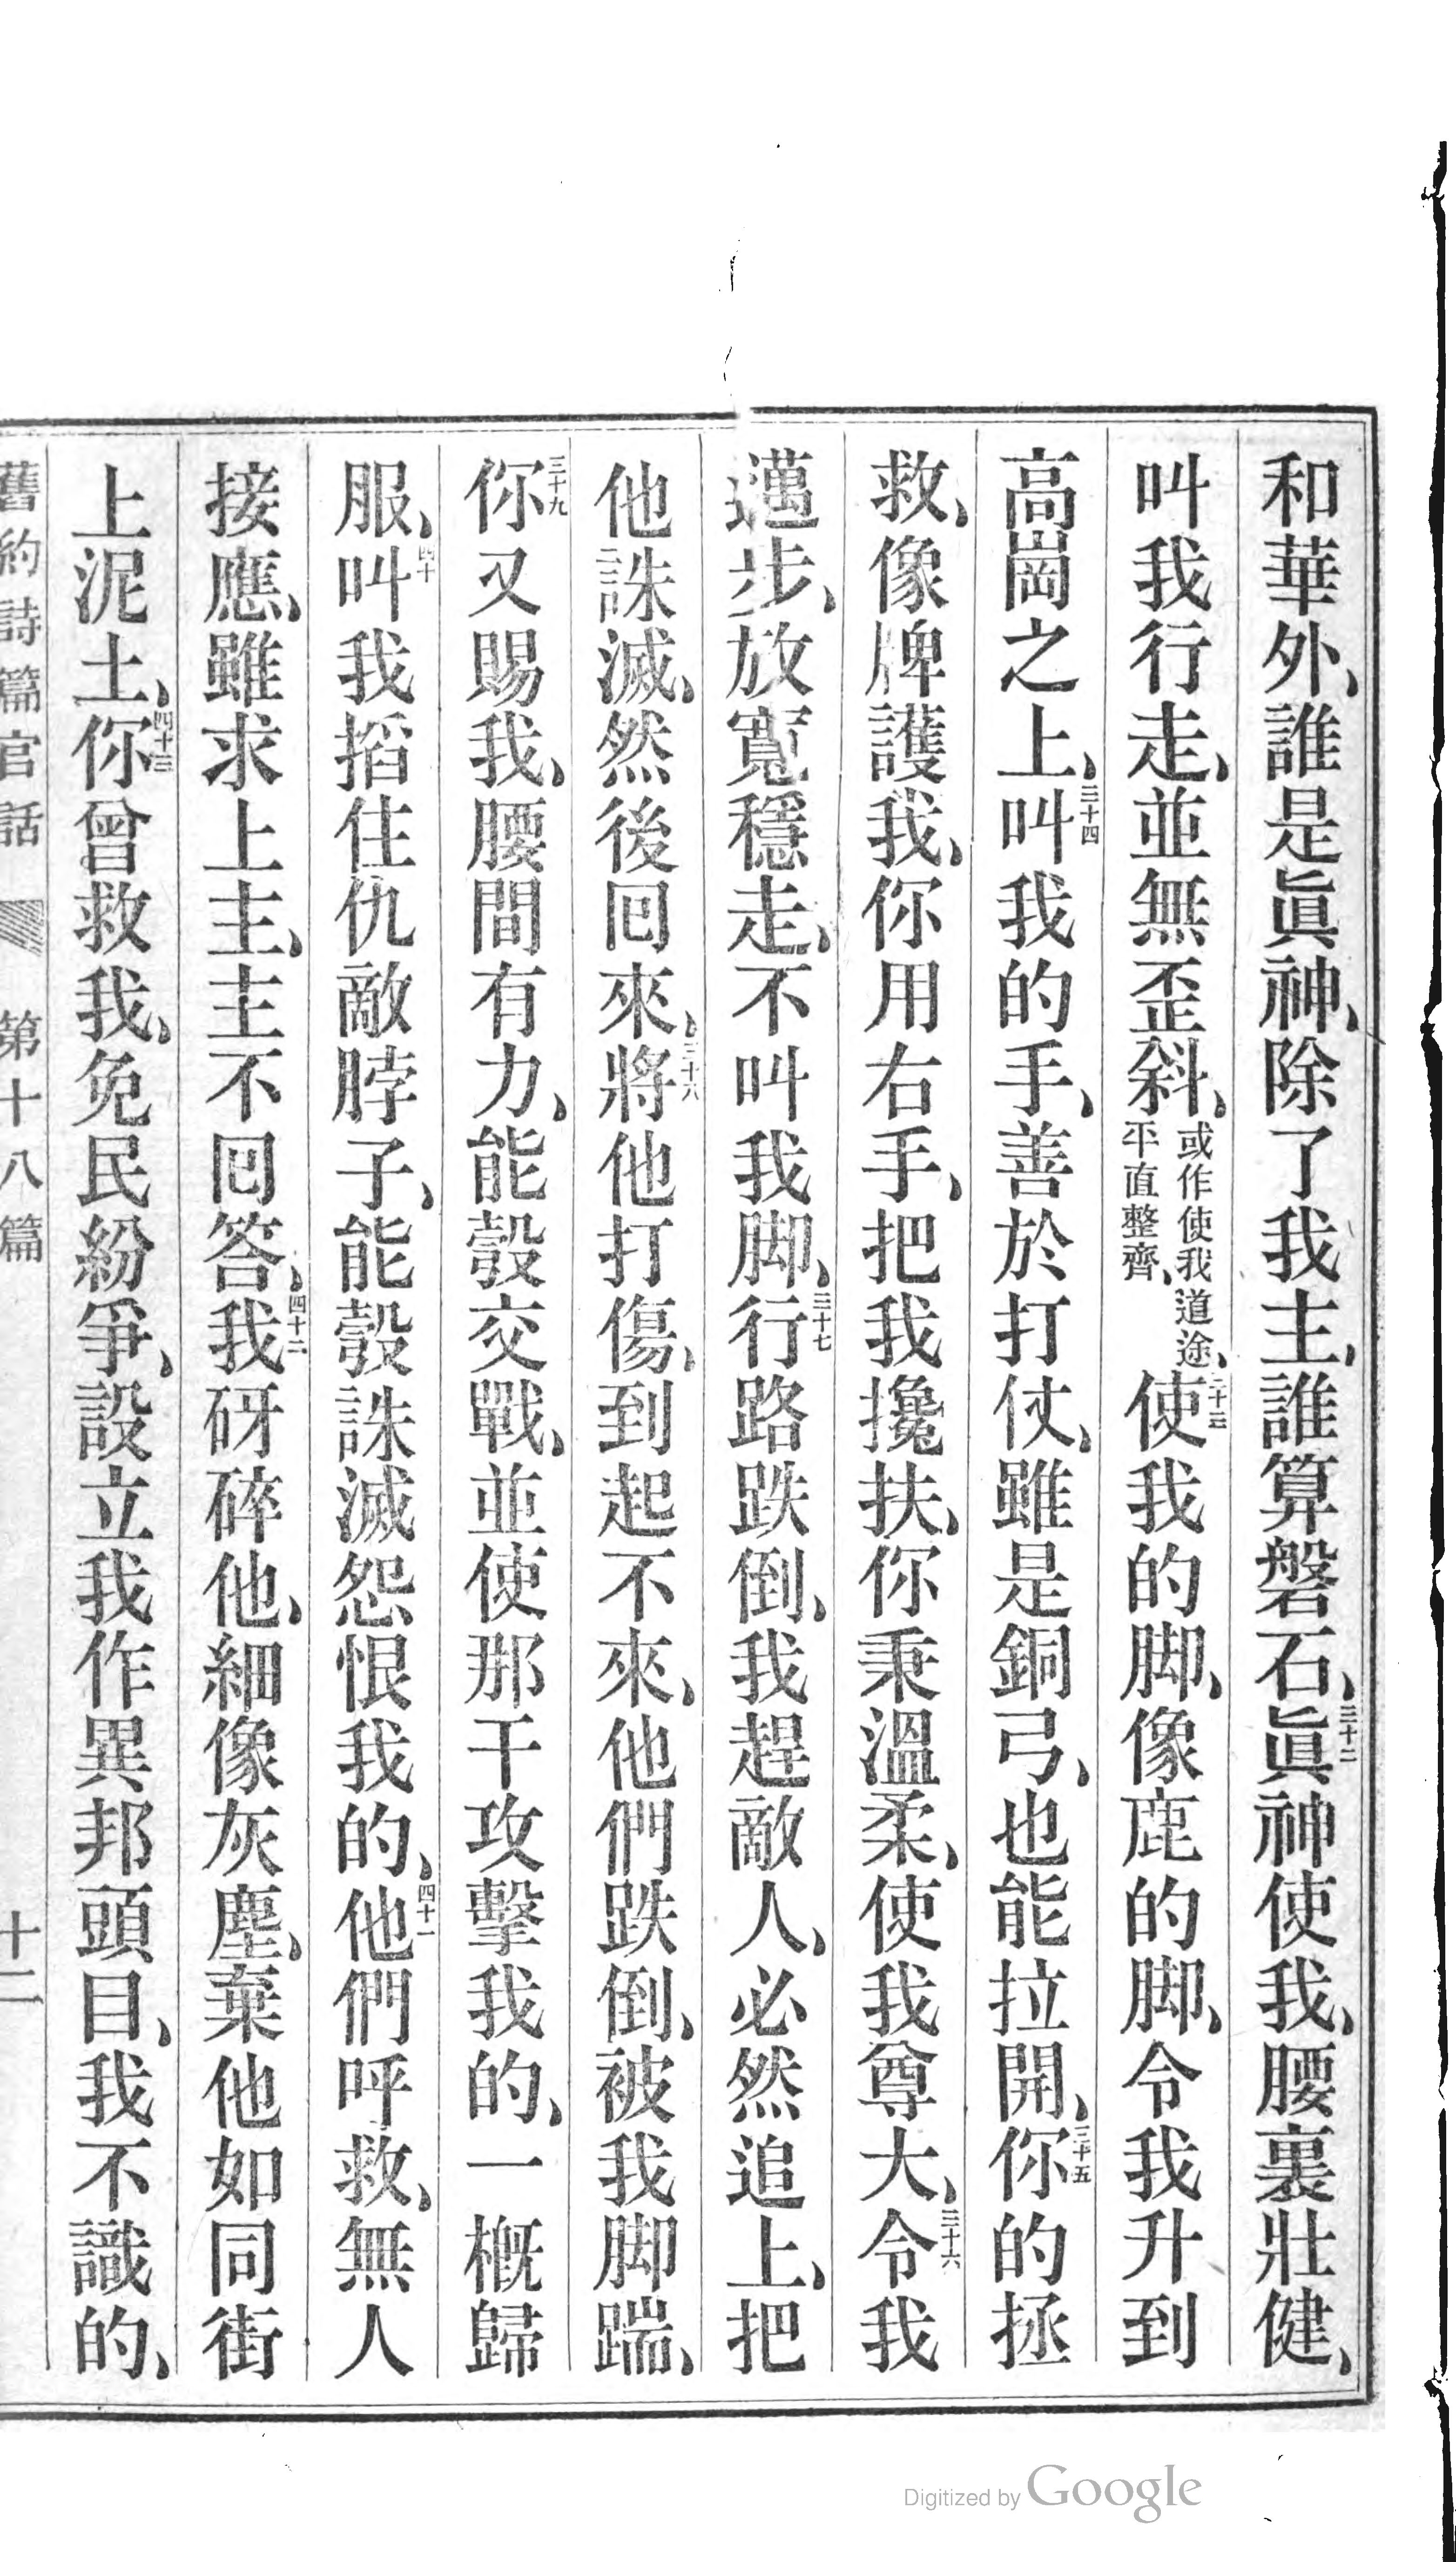 和華外、誰是眞神、除了我主、誰算磐石、三十二眞神使我、腰裏壯健、
叫我行走、並無歪斜、或作使我道途、平直整齊、三十三使我的脚、像鹿的脚、令我升到
高崗之上、三十四叫我的手、善於打仗、雖是銅弓、也能拉開、三十五你的拯
救、像牌護我、你用右手、把我攙扶、你秉溫柔、使我尊大、三十六令我
邁步、放寬穩走、不叫我脚、三十七行路跌倒、我趕敵人、必然追上、把
他誅滅、然後回來、三十八將他打傷、到起不來、他們跌倒、被我脚踹、
三十九你又賜我、腰間有力、能彀交戰、並使那干攻擊我的、一概歸
服、四十叫我搯住仇敵脖子、能彀誅滅怨恨我的、四十一他們呼救、無人
接應、雖求上主、主不回答、四十二我砑碎他、細像灰塵、棄他如同街
上泥土、四十三你曾救我、免民紛爭、設立我作異邦頭目、我不識的、
舊約詩篇官話 第十八篇 十二
Digitized by Google